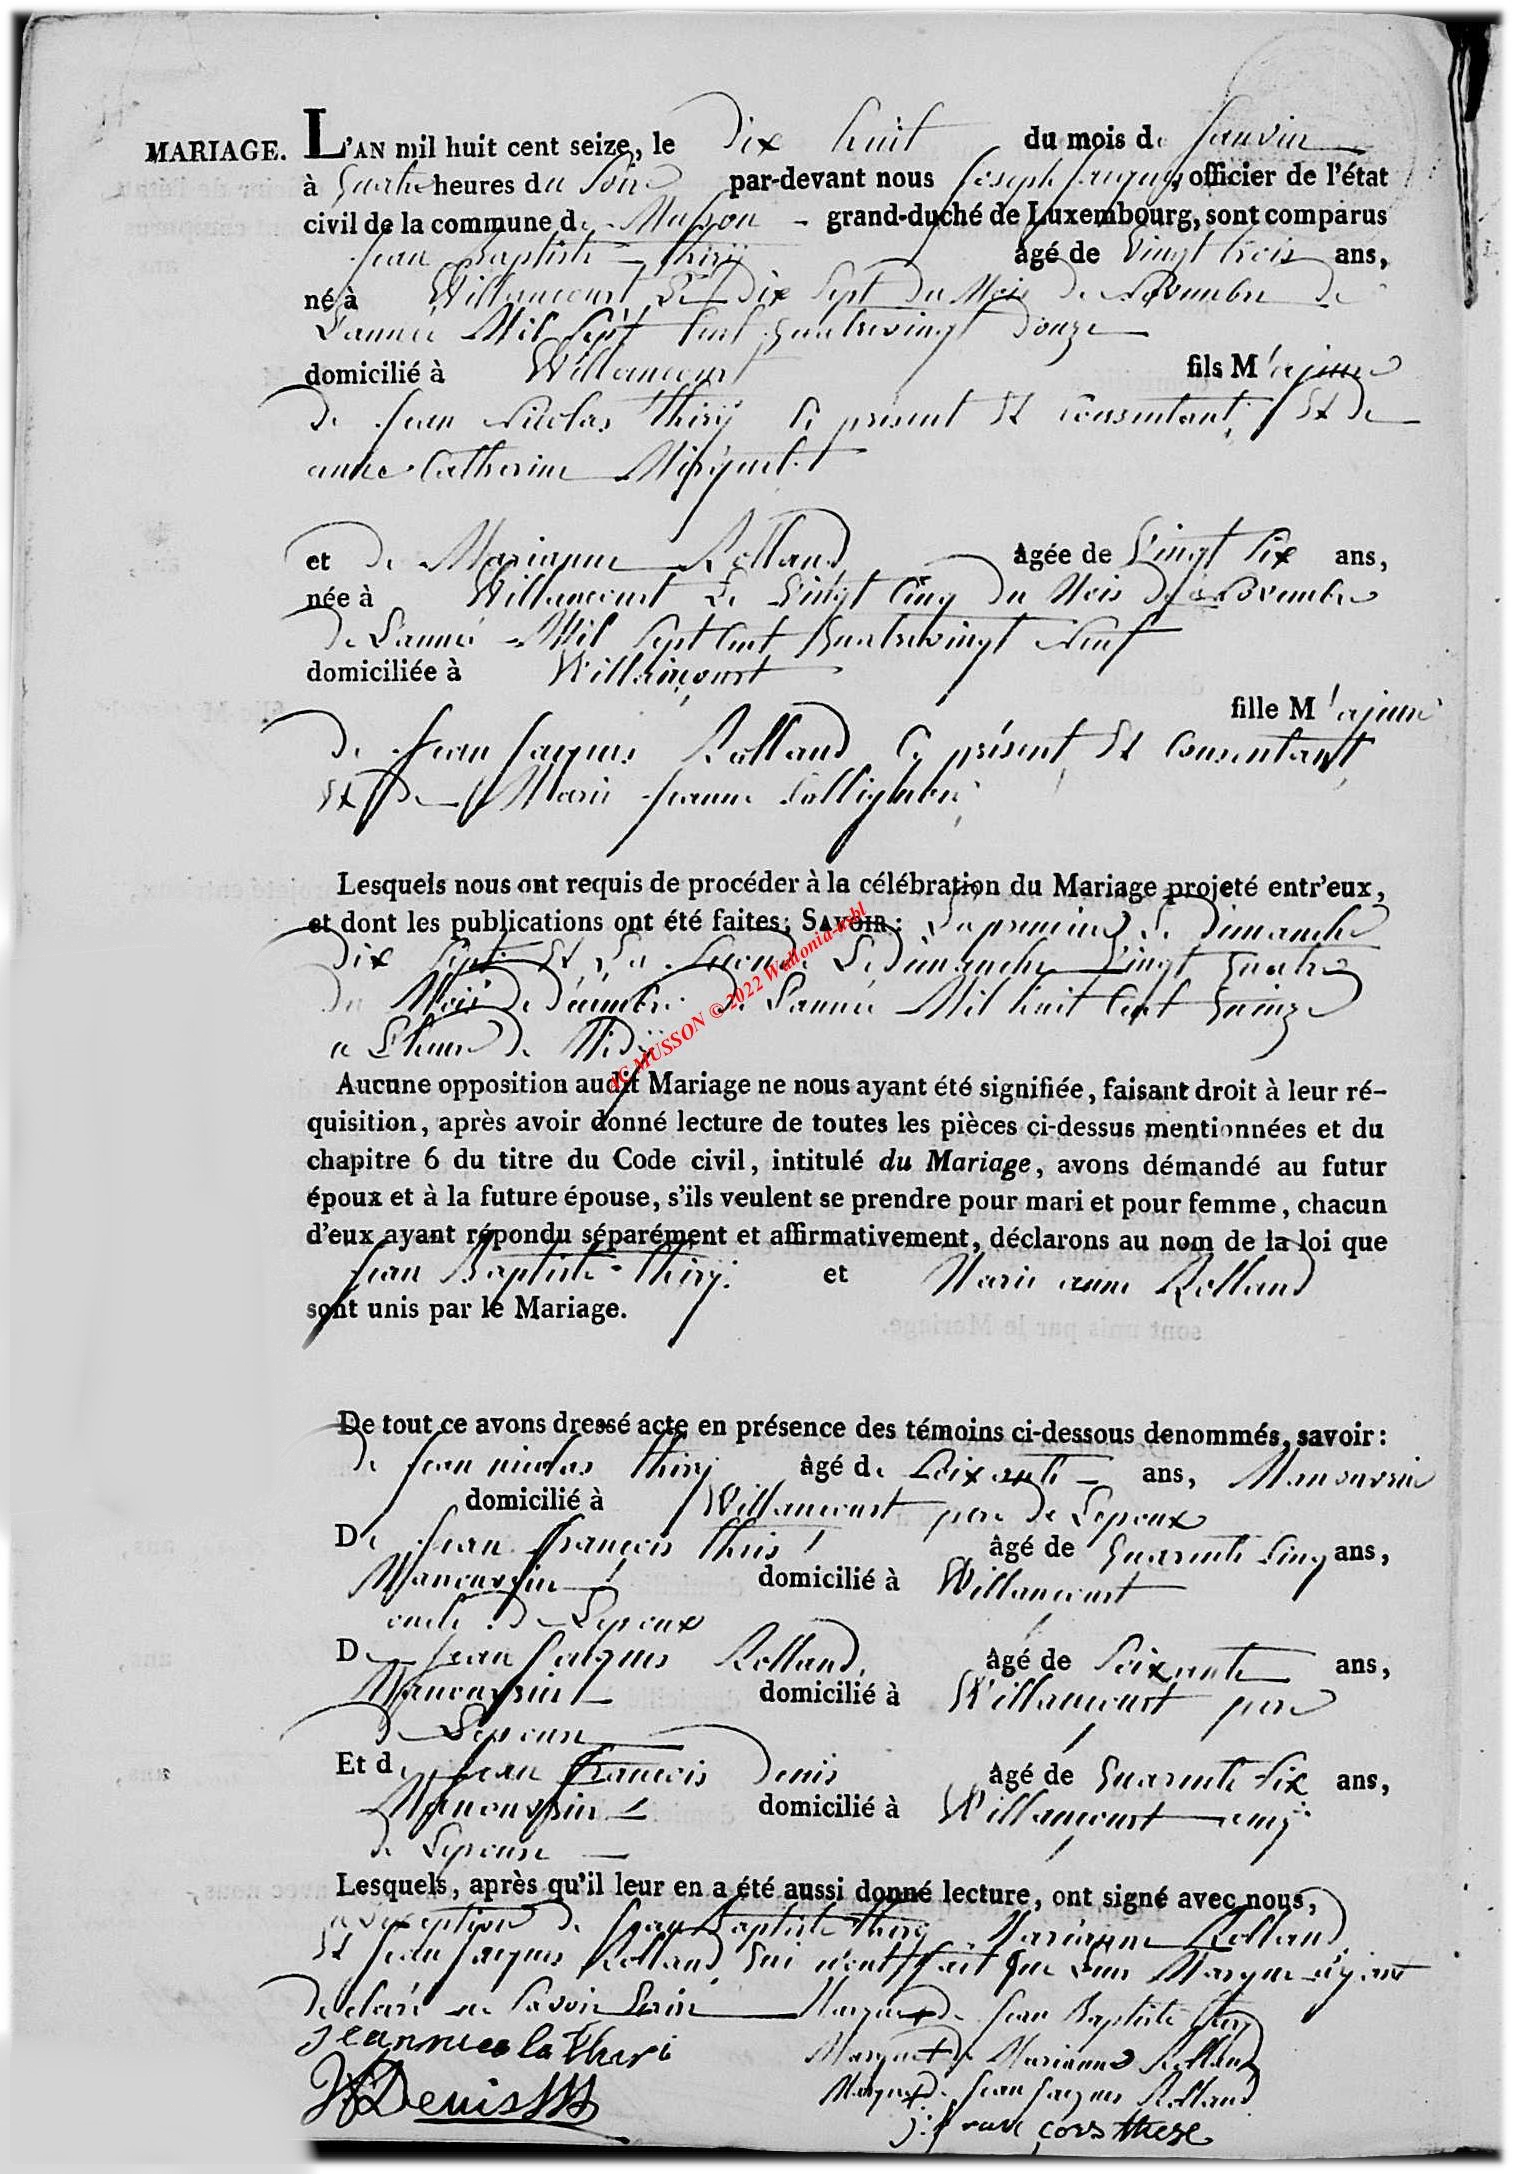 MARIAGE. L'AN mil huit cent seize, le Dix huit du mois de Janvier
à Quatre heures du Soire par-devant nous Joseph Jacques, officier de l'état
civil de la commune de Musson - grand-duché de Luxembourg, sont comparus
Jean Baptiste Thirÿ âgé de Vingt trois ans,
né à Willancourt Le Dix Sept Du Mois De Novembre De
L'année Mil Sept Cent Quatrevingt Douze
domicilié à Willancourt fils Majeure
De Jean Nicolas Thirÿ Ci present Et Consentant, Et De
anne Catherine
et De Marianne Rolland âgée de Vingt Six ans,
née à Willancourt Le Vingt Cinq Du Mois De Novembre
De L'année Mil Sept Cent Quatrevingt Neuf
domiciliée à Willancourt
fille Majeure
De Jean Jacques Rolland Cy présent Et Consentant,
Et De Marie Jeanne
Lesquels nous ont requis de procéder à la célébration du Mariage projeté entr'eux,
et dont les publications ont été faites; SAVOIR: La premiere Le Dimanche
Dix Sept Et La Seconde Le Dimanche Vingt Quatre
Du Mois De décembre De L'année Mil huit Cent Quinze
a L'heure De Midÿ
AC MUSSON © 2022 Wallonia-asbl
Aucune opposition audit Mariage ne nous ayant été signifiée, faisant droit à leur ré-
quisition, après avoir donné lecture de toutes les pièces ci-dessus mentionnées et du
chapitre 6 du titre du Code civil, intitulé du Mariage, avons démandé au futur
époux et à la future épouse, s'ils veulent se prendre pour mari et pour femme, chacun
d'eux ayant répondu séparément et affirmativement, déclarons au nom de la loi que
Jean Baptiste Thirÿ. et Marie anne Rolland
sont unis par le Mariage.
De tout ce avons dressé acte en présence des témoins ci-dessous denommés, savoir:
de Jean nicolas Thirÿ âgé de Soixante ans, Manouvrie
domicilié à Willancourt pere de Lepoux
De Jean françois Thiris âgé de Quarente Cinq ans,
Manouvrier domicilié à Willancourt
oncle De Lepoux
De Jean Jacques Rolland, âgé de Soixante ans,
Manouvrier domicilié à Willancourt pere
de Lepouse
Et de Jean françois Denis âgé de Quarente Six ans,
Manouvrier domicilié à Willancourt amÿ
de Lepouse
Lesquels, après qu'il leur en a été aussi donné lecture, ont signé avec nous,
a Exception de Jean Baptiste Thirÿ Marianne Rolland
Et Jean Jacques Rolland Qui n'ont fait Que Leur Marque aÿant
declaré ne Savoir Ecrire Marque + de Jean Baptiste Thirÿ
Jeannicola Thiri Marque + De Marianne Rolland
Denis Marque + De Jean Jacques Rolland